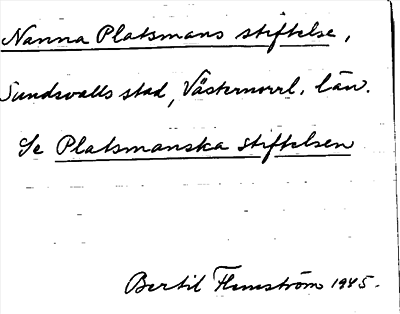 Nanna Platsmans stiftelse,
Sundsvalls stad, Västernorrl. län.
Se Platsmanska stiftelsen
Bertil Flemström 1945.